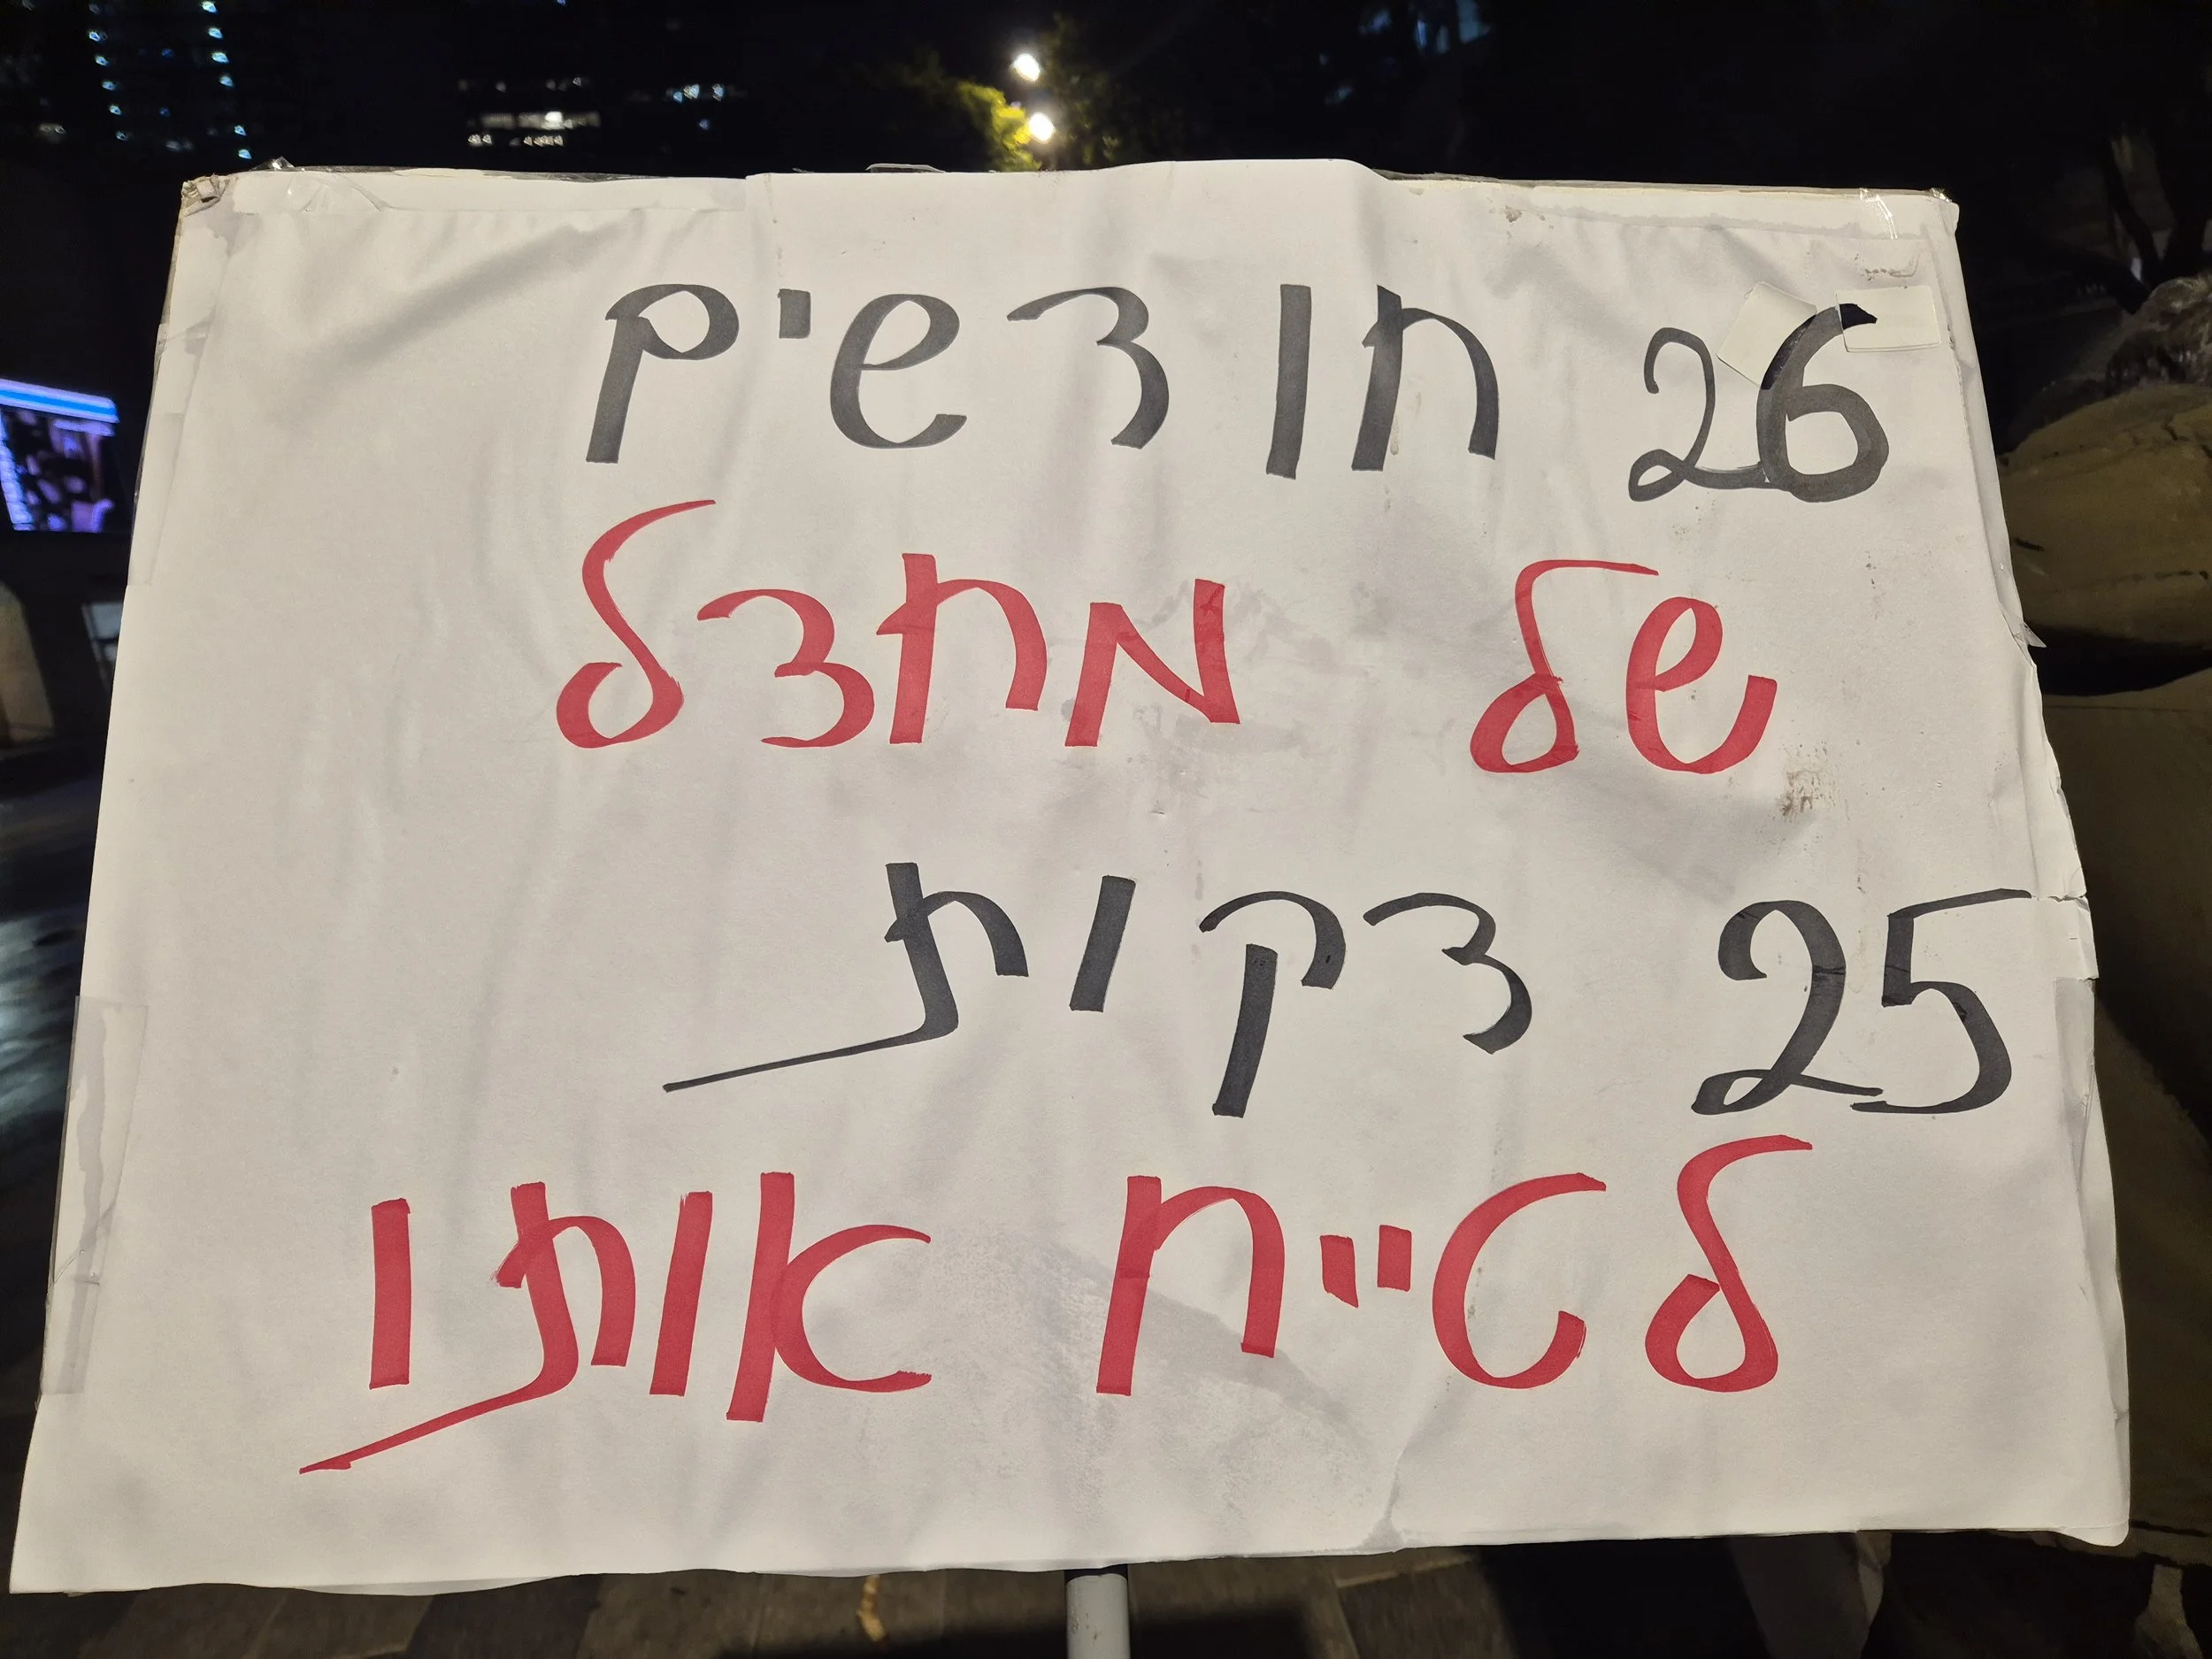 26 חודשים
של מחדל
25 דקות
לטייח אותו